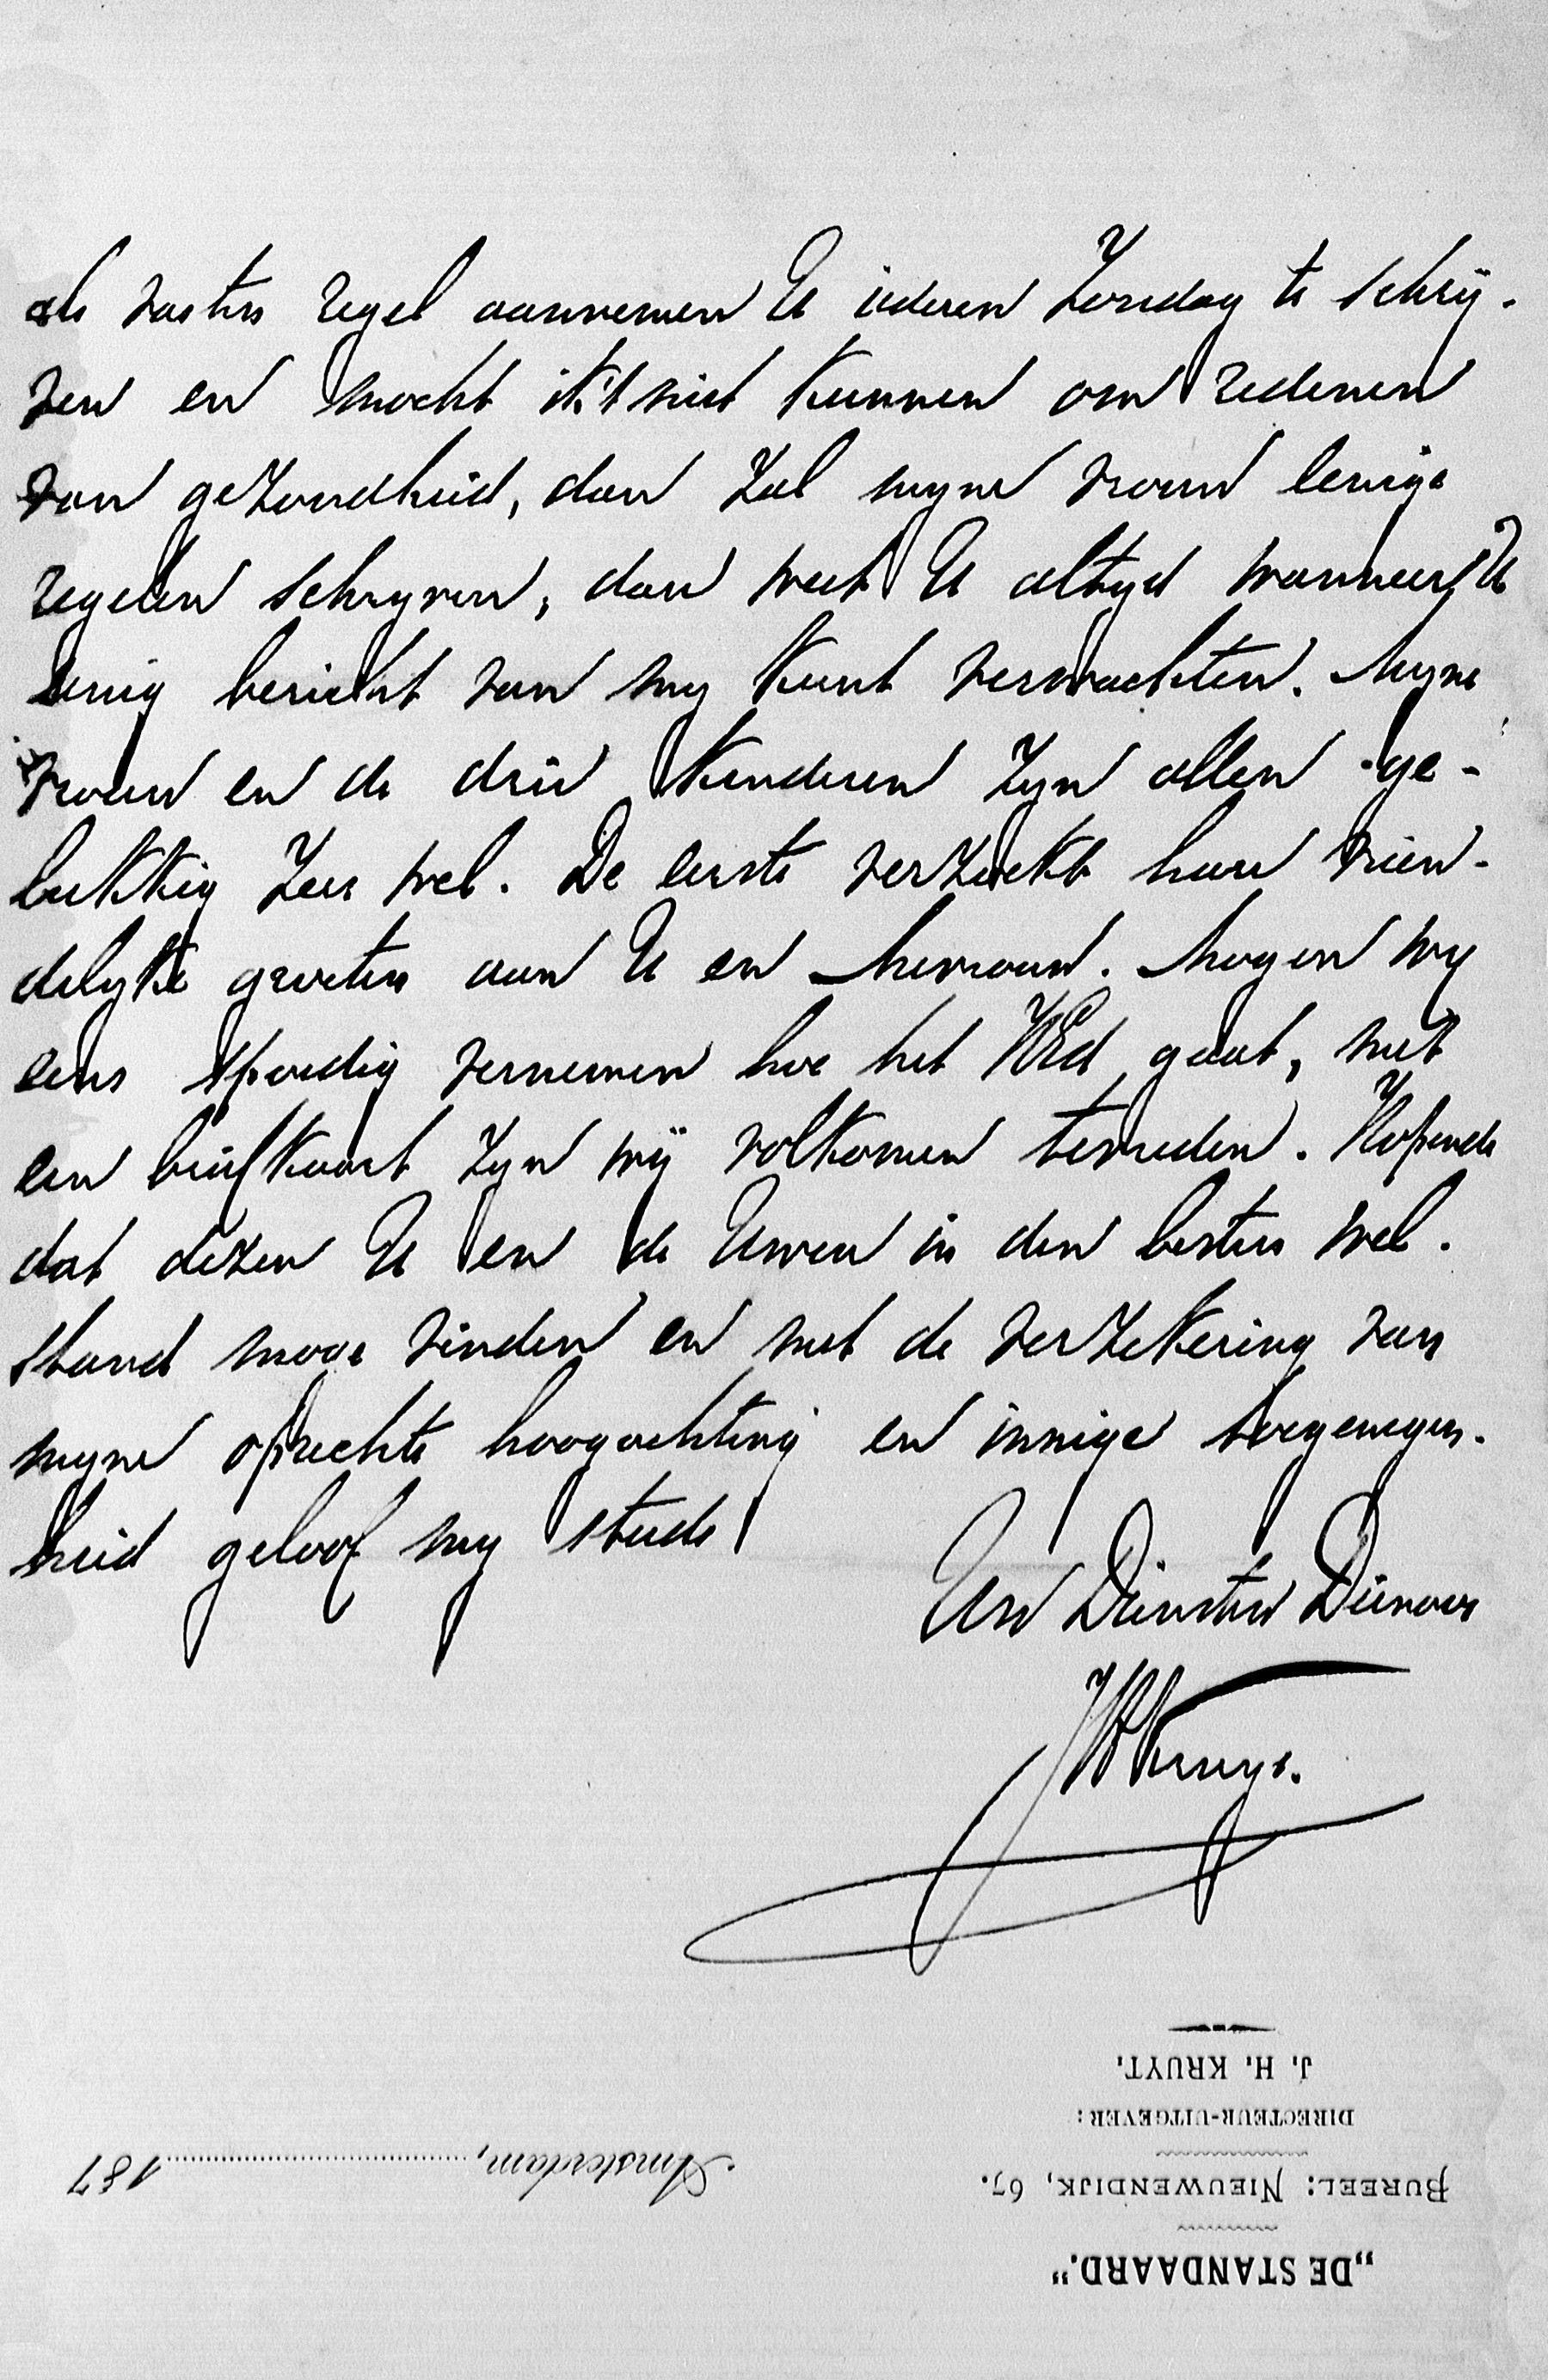 als vasten regel aannemen U iederen Zondag te schrij-
ven en mocht ik 't niet kunnen om redenen
van gezondheid, dan zal myne vrouw eenige
regelen schryven, dan weet U altyd wanneer U
eenig bericht van my kunt verwachten. Myne
vrouw en de drie kinderen zyn allen ge-
lukkig zeer wel. De eerste verzoekt hare vrien-
delyke groeten aan U en Mevrouw. Mogen wy
eens spoedig vernemen hoe het UEd gaat, met
een briefkaart zyn wij volkomen tevreden. Hopende
dat dezen U en de Uwen in den besten wel-
stand moge vinden en met de verzekering van
myne oprechte hoogachting en innige toegenegen-
heid geloof my steeds
Uw Dienstw Dienaar
JHKruyt.
J. H. KRUYT.
DIRECTEUR-UITGEVER:
Amsterdam, 187
BUREEL: NIEUWENDIJK, 67.
„DE STANDAARD."